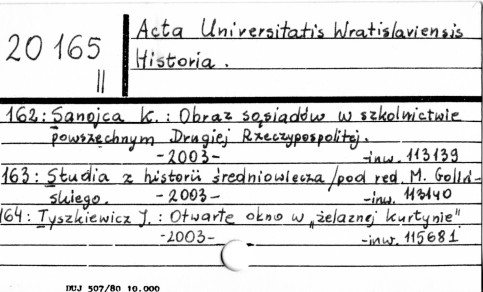 20 165
II
Acta Universitatis Wratislaviensis
Historia.
162: Sanojca K.: Obraz sąsiadów w szkolnictwie
powszechnym Drugiej Rzeczypospolitej.
-2003- -inw. 113139
163: Studia z historii średniowiecza/pod red. M. Goliń-
skiego. -2003- -inw. 113140
164: Tyszkiewicz J.: Otwarte okno w „żelaznej kurtynie"
-2003- -inw. 115681
DUJ 507/80 10.000